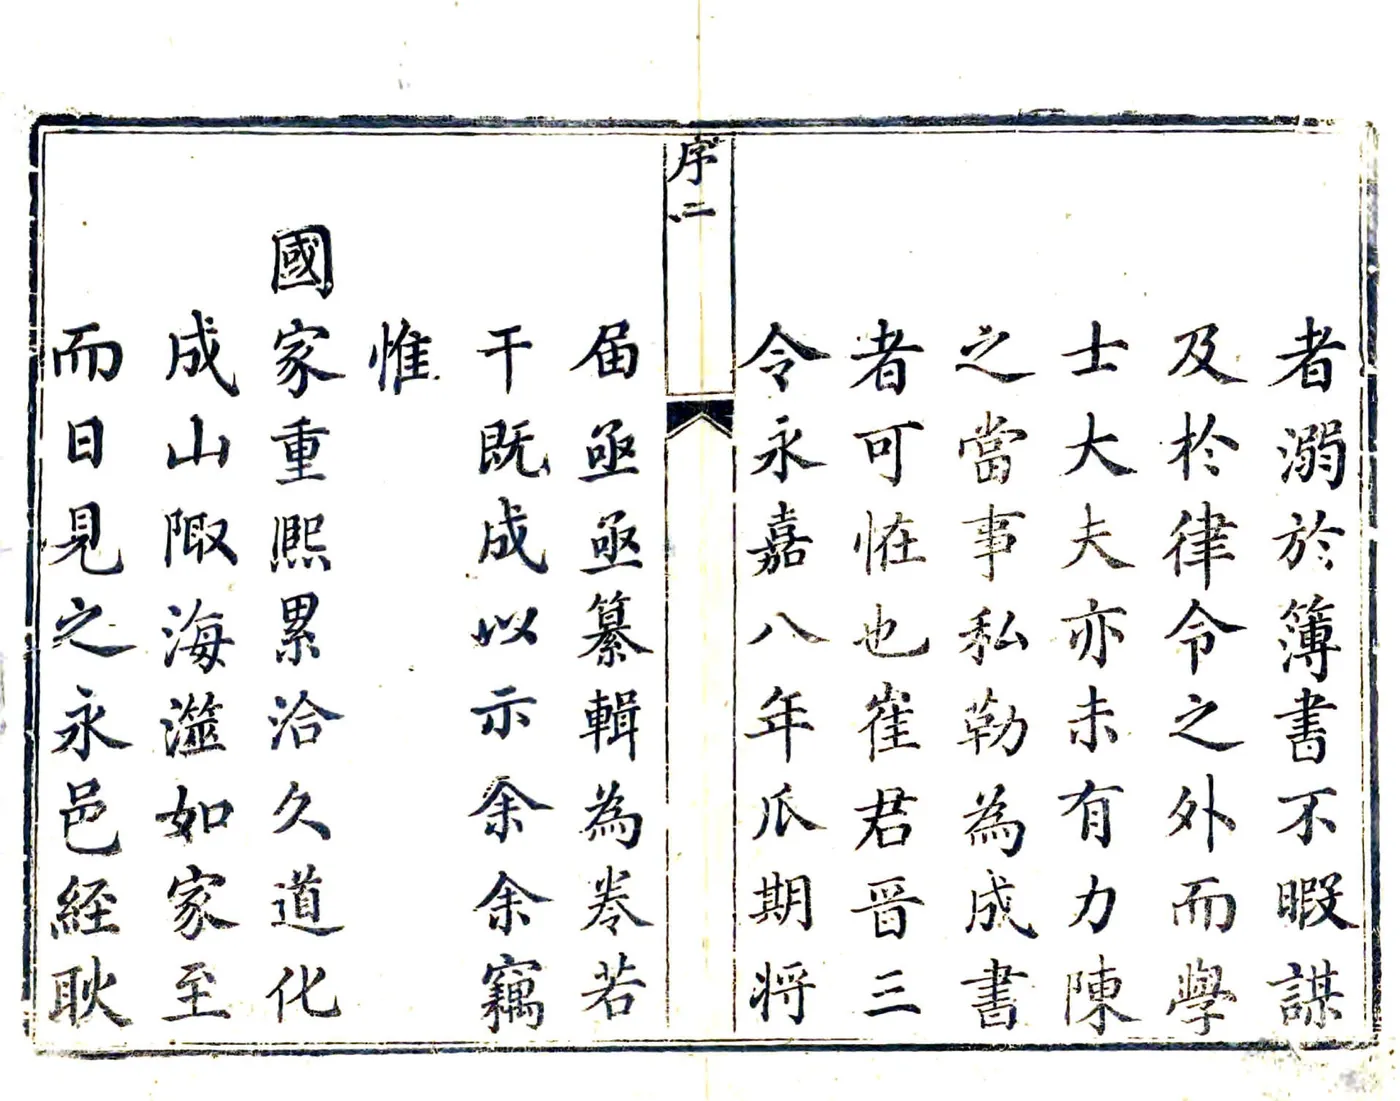 者溺於簿書不暇謀
及於律令之外而學
士大夫亦未有力陳
之當事私勒為成書
者可恠也崔君晉三
令永嘉八年瓜期將
序二
届亟亟纂輯為卷若
干既成以示余余竊
惟
國家重熙累洽久道化
成山陬海澨如家至
而日見之永邑経耿